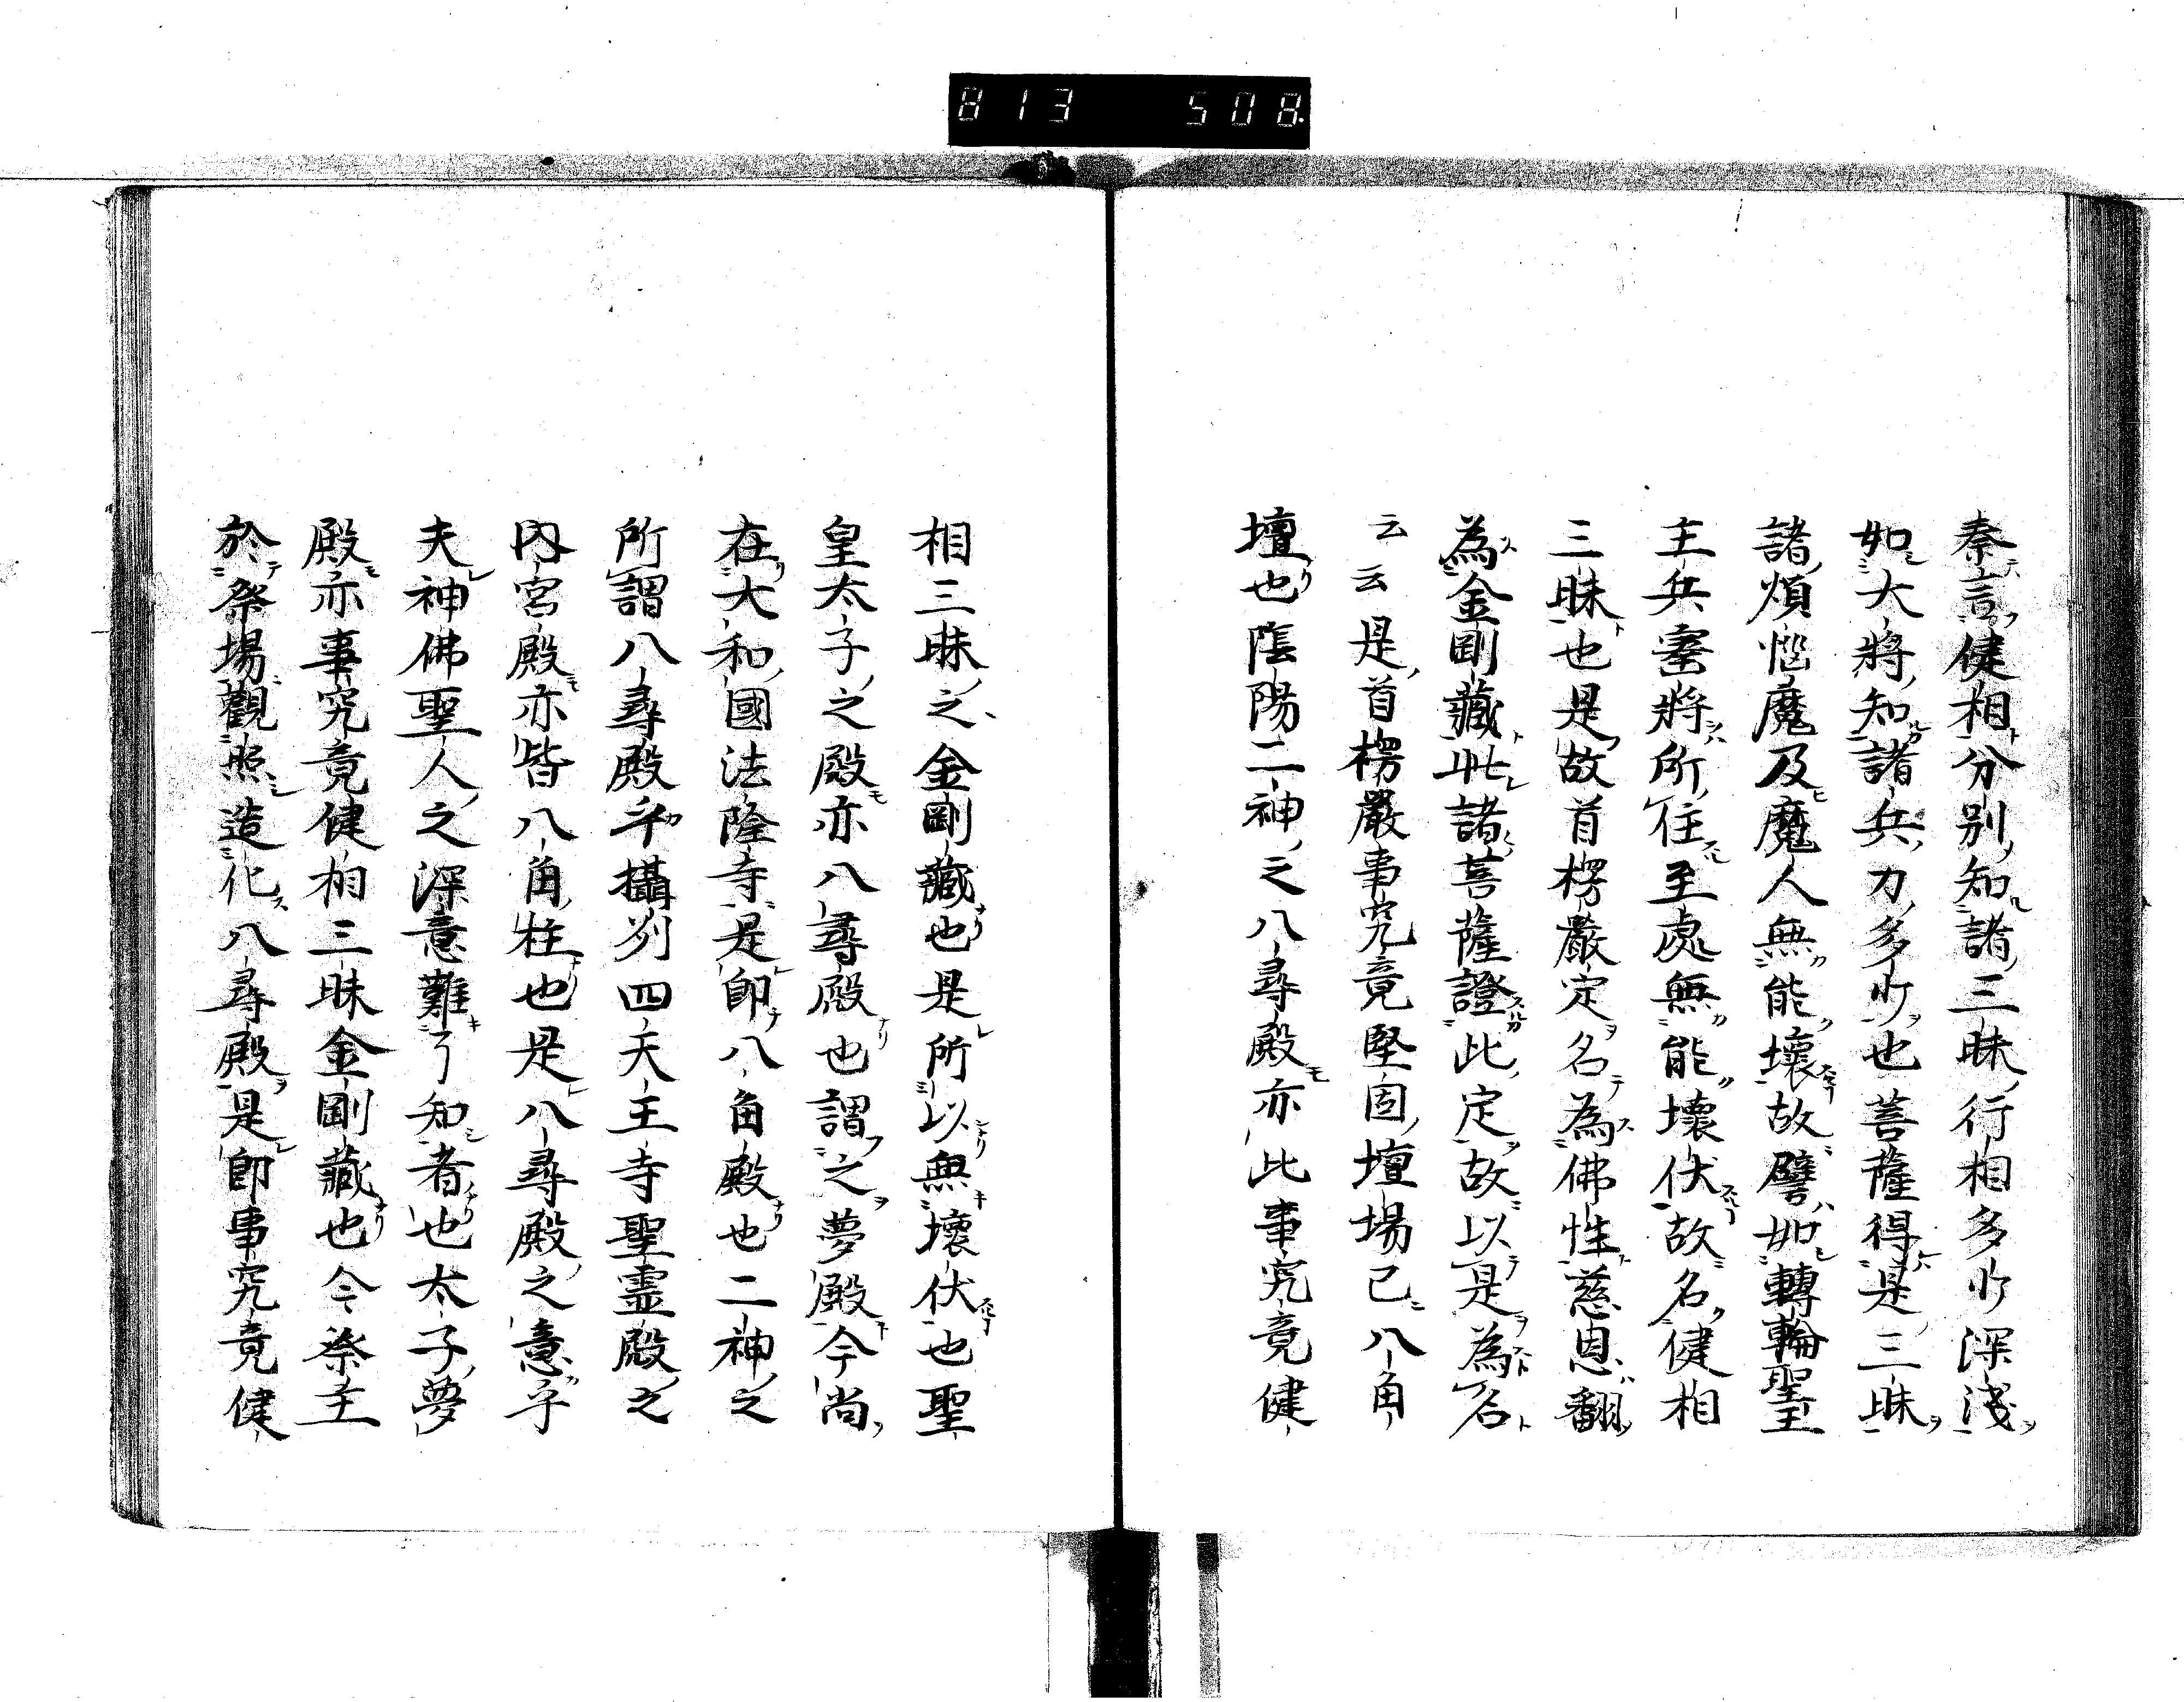 813 508
秦言健相分別知諸三昧行相多少深淺
如大將知諸兵力多少也菩薩得是三昧
諸煩惱魔及魔人無能壞故譬如轉輪聖
主兵寳將所住至處無能壞伏故名健相
三昧也是故首楞嚴定名為佛性慈恩翻
為金剛藏此諸菩薩證此定故以是為名
云云是首楞嚴事究竟堅固壇場已八角
壇也陰陽二神之八尋殿亦此事究竟健
相三昧之金剛藏也是所以無壞伏也聖
皇太子之殿亦八尋殿也謂之夢殿今尚
在大和國法隆寺是卽八角殿也二神之
所謂八尋殿乎攝列四天王寺聖霊殿之
內宮殿亦皆八角柱也是八尋殿之意乎
夫神佛聖人之深意難了知者也太子夢
殿亦事究竟健相三昧金剛藏也今祭主
於祭場觀照造化八尋殿是卽事究竟健